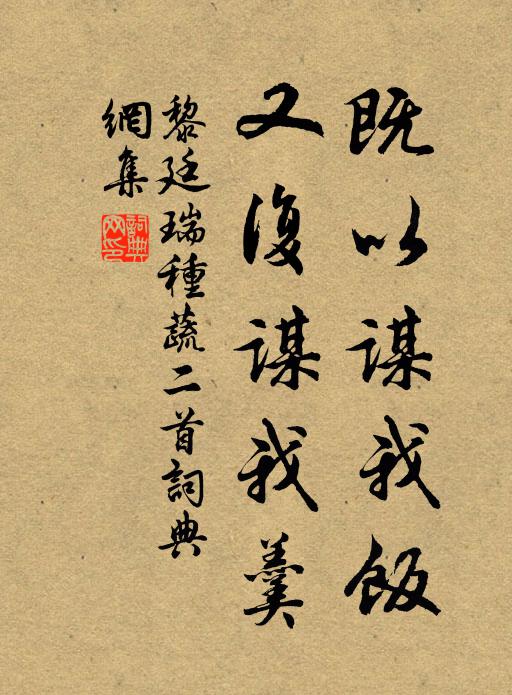 既以謀我飯
又復謀我羹
黎廷瑞種蔬二首詞典
網集
詞典網印